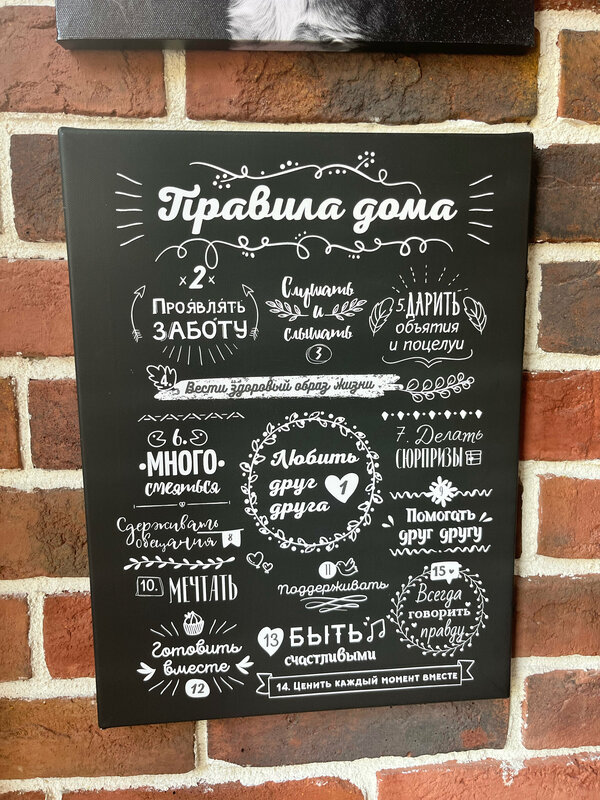 Правила дома
2
Проявлять
заботу
Слушать
и
слышать
3
5. Дарить
объятия
и поцелуи
4. Вести здоровый образ жизни
6.
много
смеяться
Любить
друг
друга
1
7. Делать
сюрпризы
Сдерживать
обещания 8
9
Помогать
друг другу
10. Мечтать
11
Поддерживать
15
Всегда
говорить
правду
Готовить
вместе
12
13 Быть
счастливыми
14. Ценить каждый момент вместе